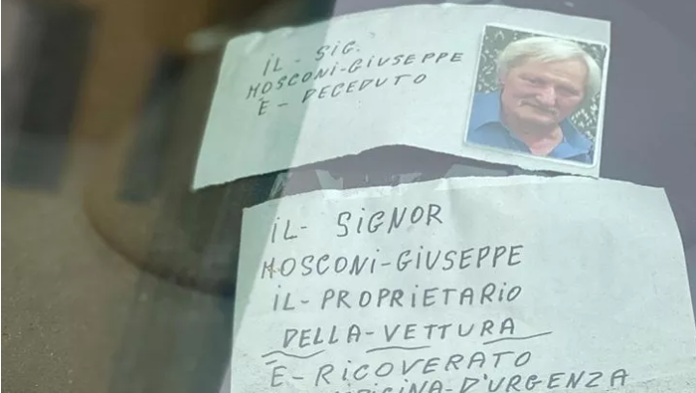 IL - SIG.
MOSCONI-GIUSEPPE
E - DECEDUTO
IL- SIGNOR
MOSCONI-GIUSEPPE
IL-PROPRIETARIO
DELLA-VETTURA
E-RICOVERATO
MEDICINA-D'URGENZA